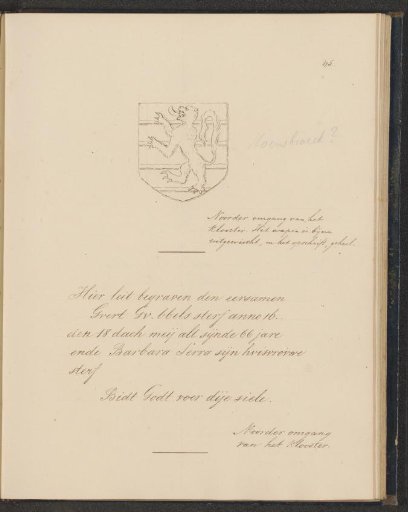 Hoensbroeck?
Noorder omgang van het
klooster. Het wapen is bijna
uitgewischt, en het geschrift geheel.
Hier leit begraven den eersamen
Evert Gv. bbels sterf anno 16..
den 18 dach meij alt synde 66 jare
ende Barbara Serro syn hvisvrovwe
sterf
Bidt Godt voor dije siele.
Noorder omgang
van het klooster.